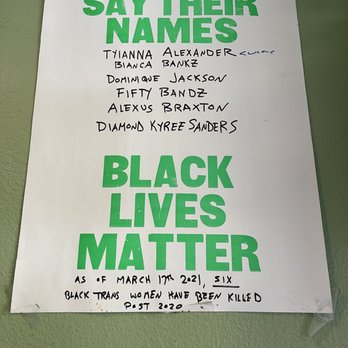 SAY THEIR
NAMES
TYIANNA ALEXANDER
BIANCA BANKZ
DOMINIQUE JACKSON
FIFTY BANDZ
ALEXUS BRAXTON
DIAMOND KYREE SANDERS
BLACK
LIVES
MATTER
AS OF MARCH 17TH 2021, SIX
BLACK TRANS WOMEN HAVE BEEN KILLED
POST 2020